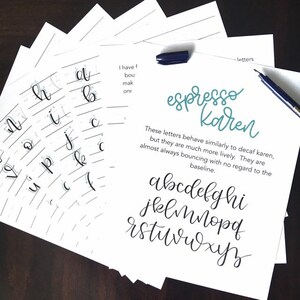 n
a
b
i
o
j
c
p
j
e
u
k
I have f
letters
bou
mak
onv
espresso
karen
These letters behave similarly to decaf karen,
but they are much more lively. They are
almost always bouncing with no regard to the
baseline.
abcdefghi
jklmnopq
rstuvwxyz